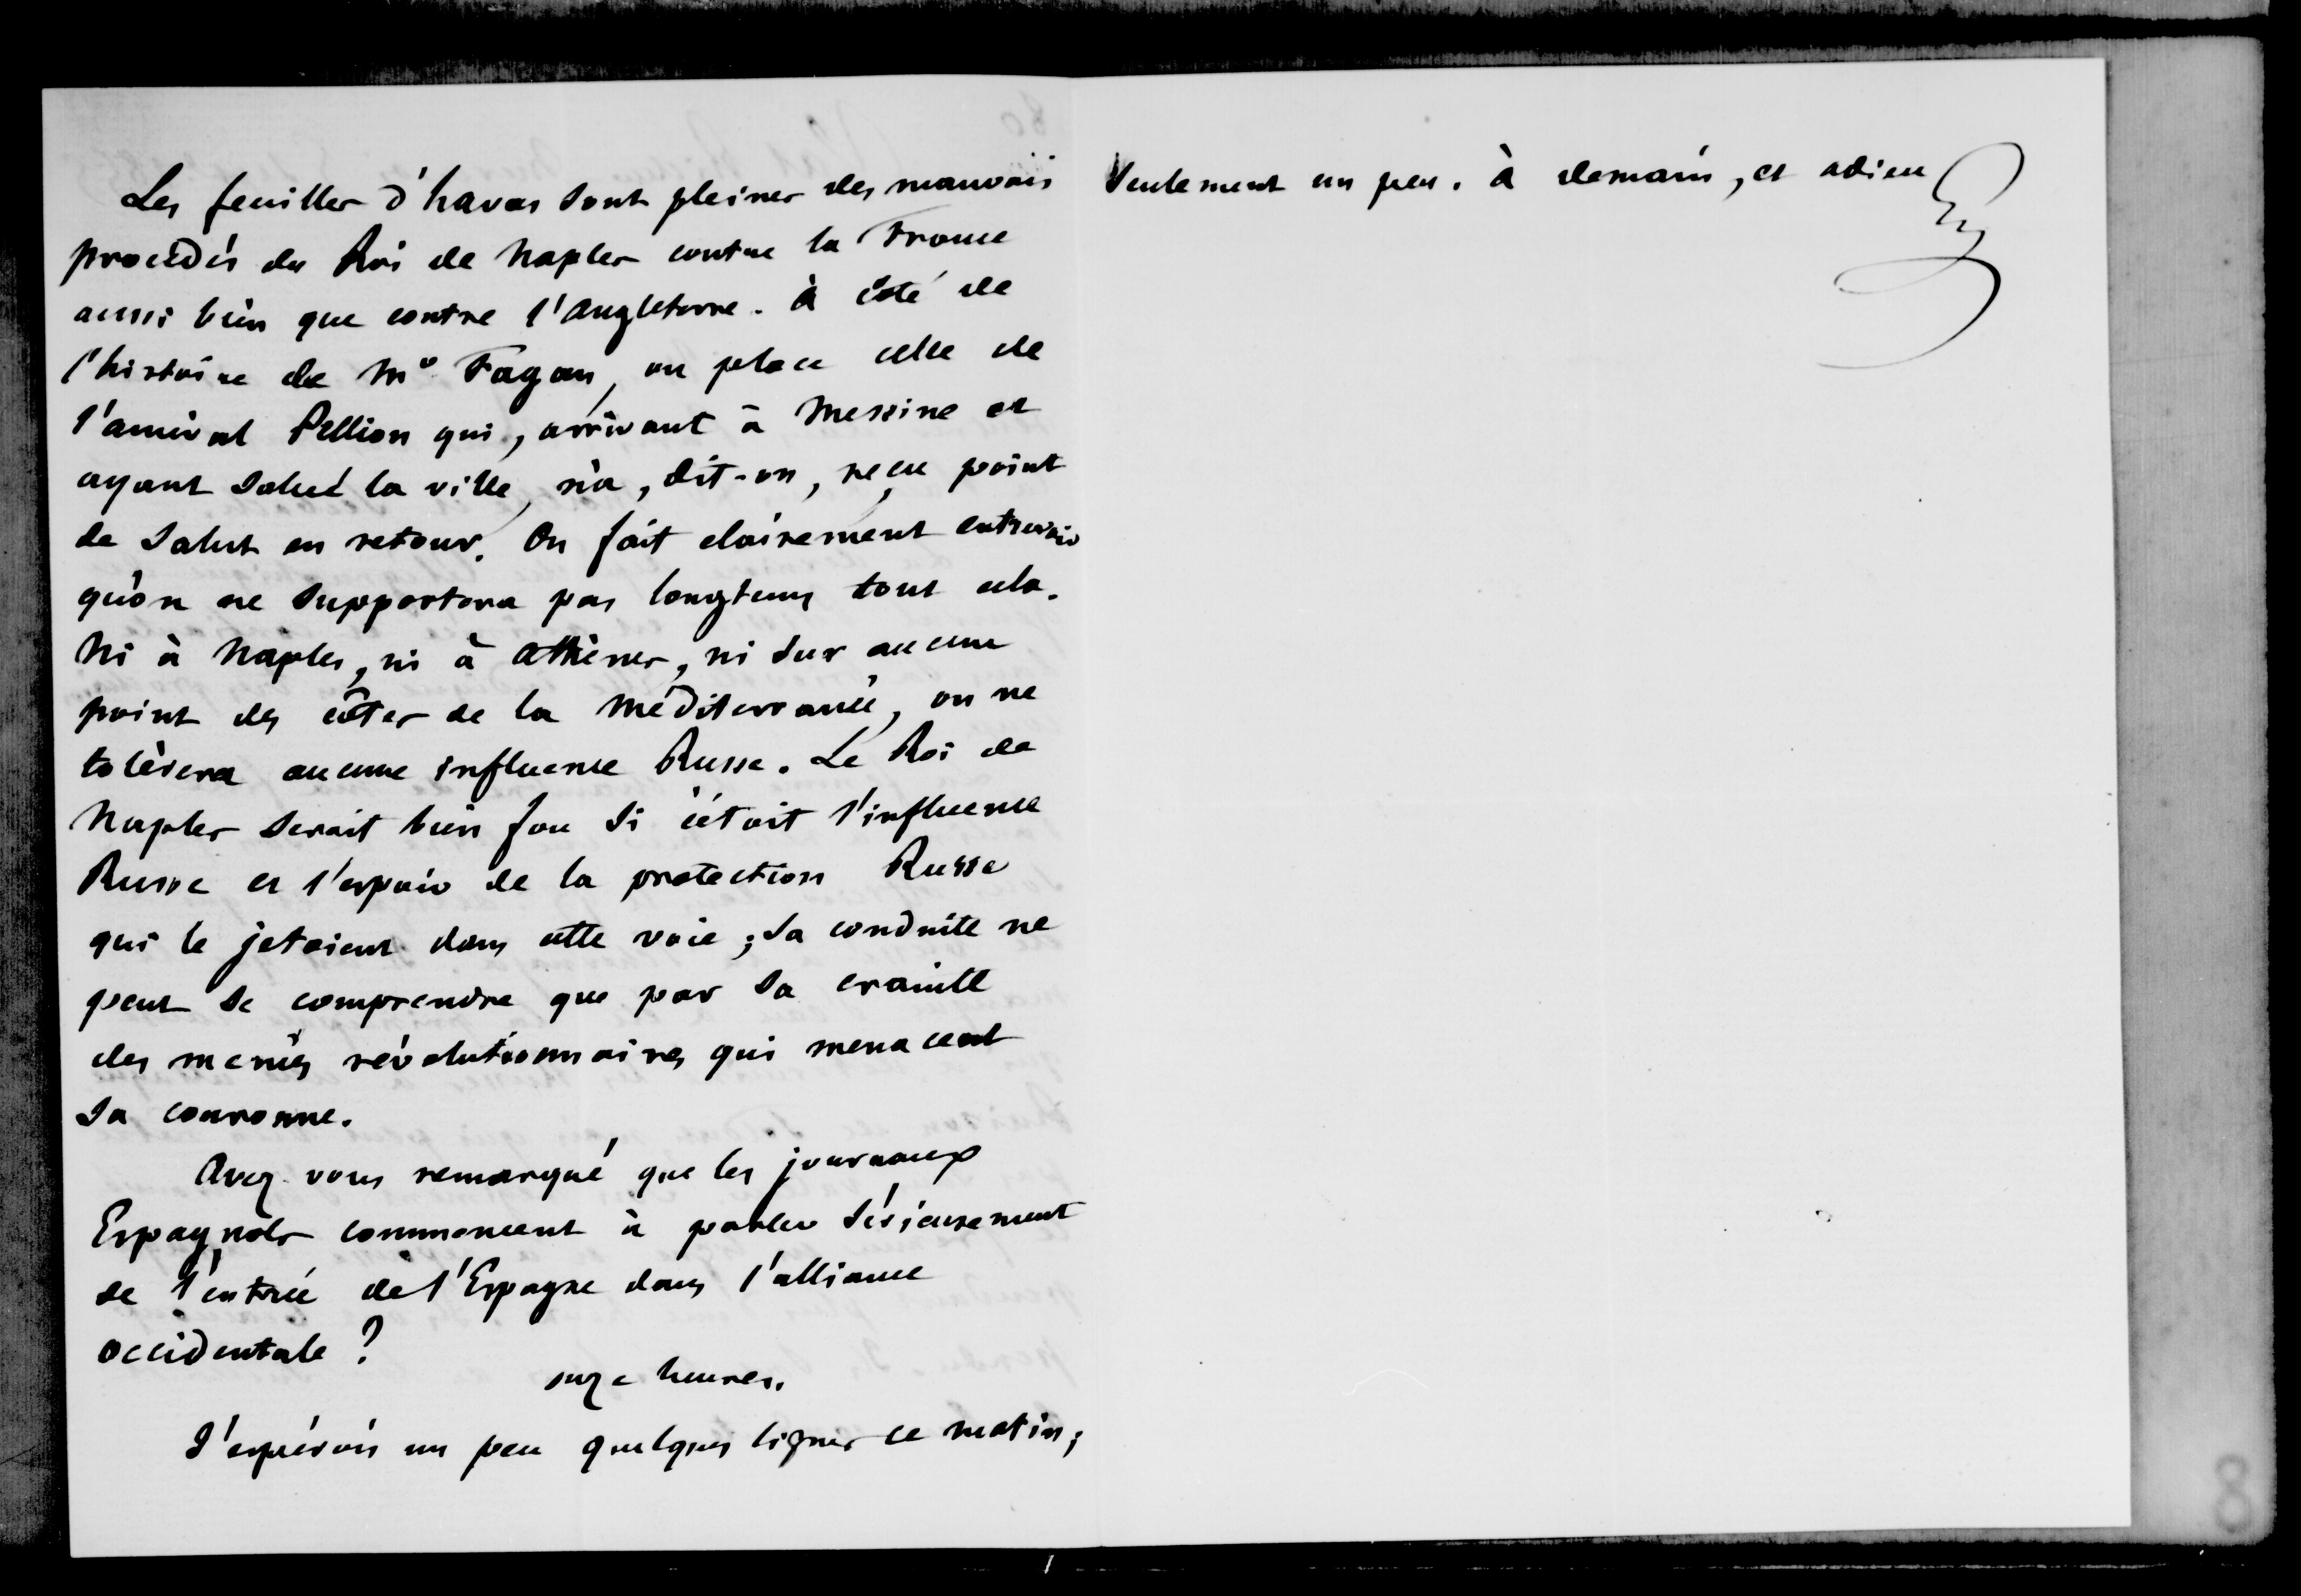 Les feuilles d'havas sont pleines des mauvais
procédés du Roi de Naples contre la France
aussi bien que contre l'Angleterre. à côté de
l'histoire de Mr Fagan, on place celle de
l'amiral Pellion qui, arrivant à Messine et
ayant salué la ville, n'a, dit-on, reçu point
de salut en retour. On fait clairement entrevoir
qu'on ne supportera pas longtems tout cela.
Ni à Naples, ni à Athènes, ni sur aucun
point des côtes de la Méditerranée, on ne
tolèrera aucune influence Russe. Le Roi de
Naples serait bien fou si c'étoit l'influence
Russe et l'espoir de la protection Russe
qui le jetoient dans cette voie ; sa conduite ne
peut se comprendre que par sa crainte
des menées révolutionnaires qui menacent
sa couronne.
Avez-vous remarqué que les journaux
Espagnols commencent à parler sérieusement
de l'entrée de l'Espagne dans l'alliance
occidentale ?
onze heures.
J'espérois un peu quelques lignes ce matin ;
seulement un peu. à demain, et adieu
8